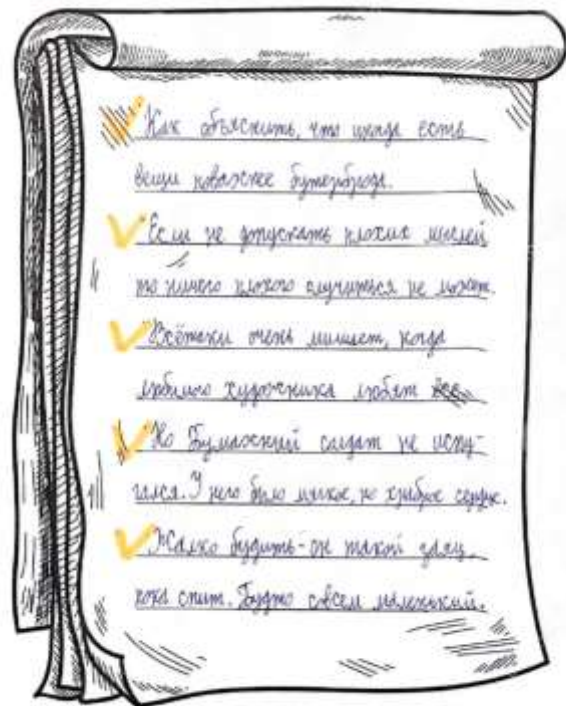 Как объяснить, что иногда есть
вещи поважнее бутерброда.
Если не допускать плохих мыслей
то ничего плохого случиться не может.
Всётаки очень мешает, когда
любимого художника любят все
Но Бумажный солдат не испу-
гался. У него было мягкое, но храброе сердце.
Жалко будить - он такой заяц,
пока спит. Будто совсем маленький.